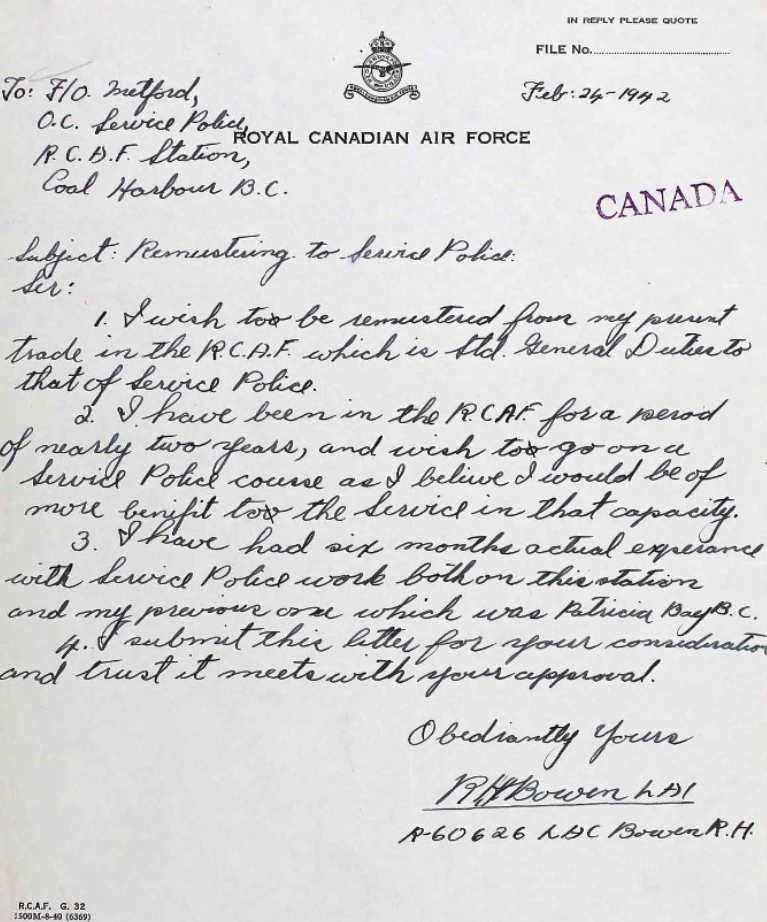 IN REPLY PLEASE QUOTE
FILE No.
To: F/O. Metford,
Feb: 24-1942
O.C. Service Police,
ROYAL CANADIAN AIR FORCE
R.C.A.F. Station,
Coal Harbour B.C.
CANADA
Subject: Remustering to Service Police:
Sir:
1. I wish too be remustered from my present
trade in the R.C.A.F. which is Std. General Duties to
that of Service Police.
2. I have been in the R.C.A.F. for a perod
of nearly two years, and wish too go on a
Service Police course as I believe I would be of
more benifit too the Service in that capacity.
3. I have had six months actual experance
with Service Police work both on this station
and my previous one which was Patricia Bay B.C.
4. I submit this letter for your consideration
and trust it meets with your approval.
Obediantly Yours
RH Bowen LAC
R-60626 LAC Bowen R.H.
R.C.A.F. G. 32
1500M-8-40 (6369)